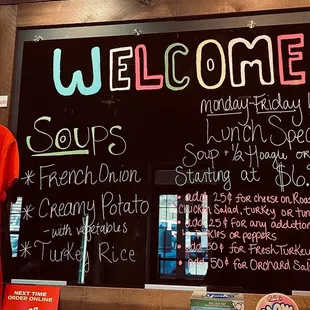 WELCOME
Monday-Friday
Lunch Spec
Soup + 1/2 Hoagie or
Starting at $6.
* add 25¢ for cheese on Roas
Chicken Salad, turkey or tun
* add 25¢ for any addition
or peppers
* add 50¢ for Fresh Turkey
* add 50¢ for Orchard Sal
Soups
* French Onion
* Creamy Potato
- with vegetables
* Turkey Rice
NEXT TIME
ORDER ONLINE